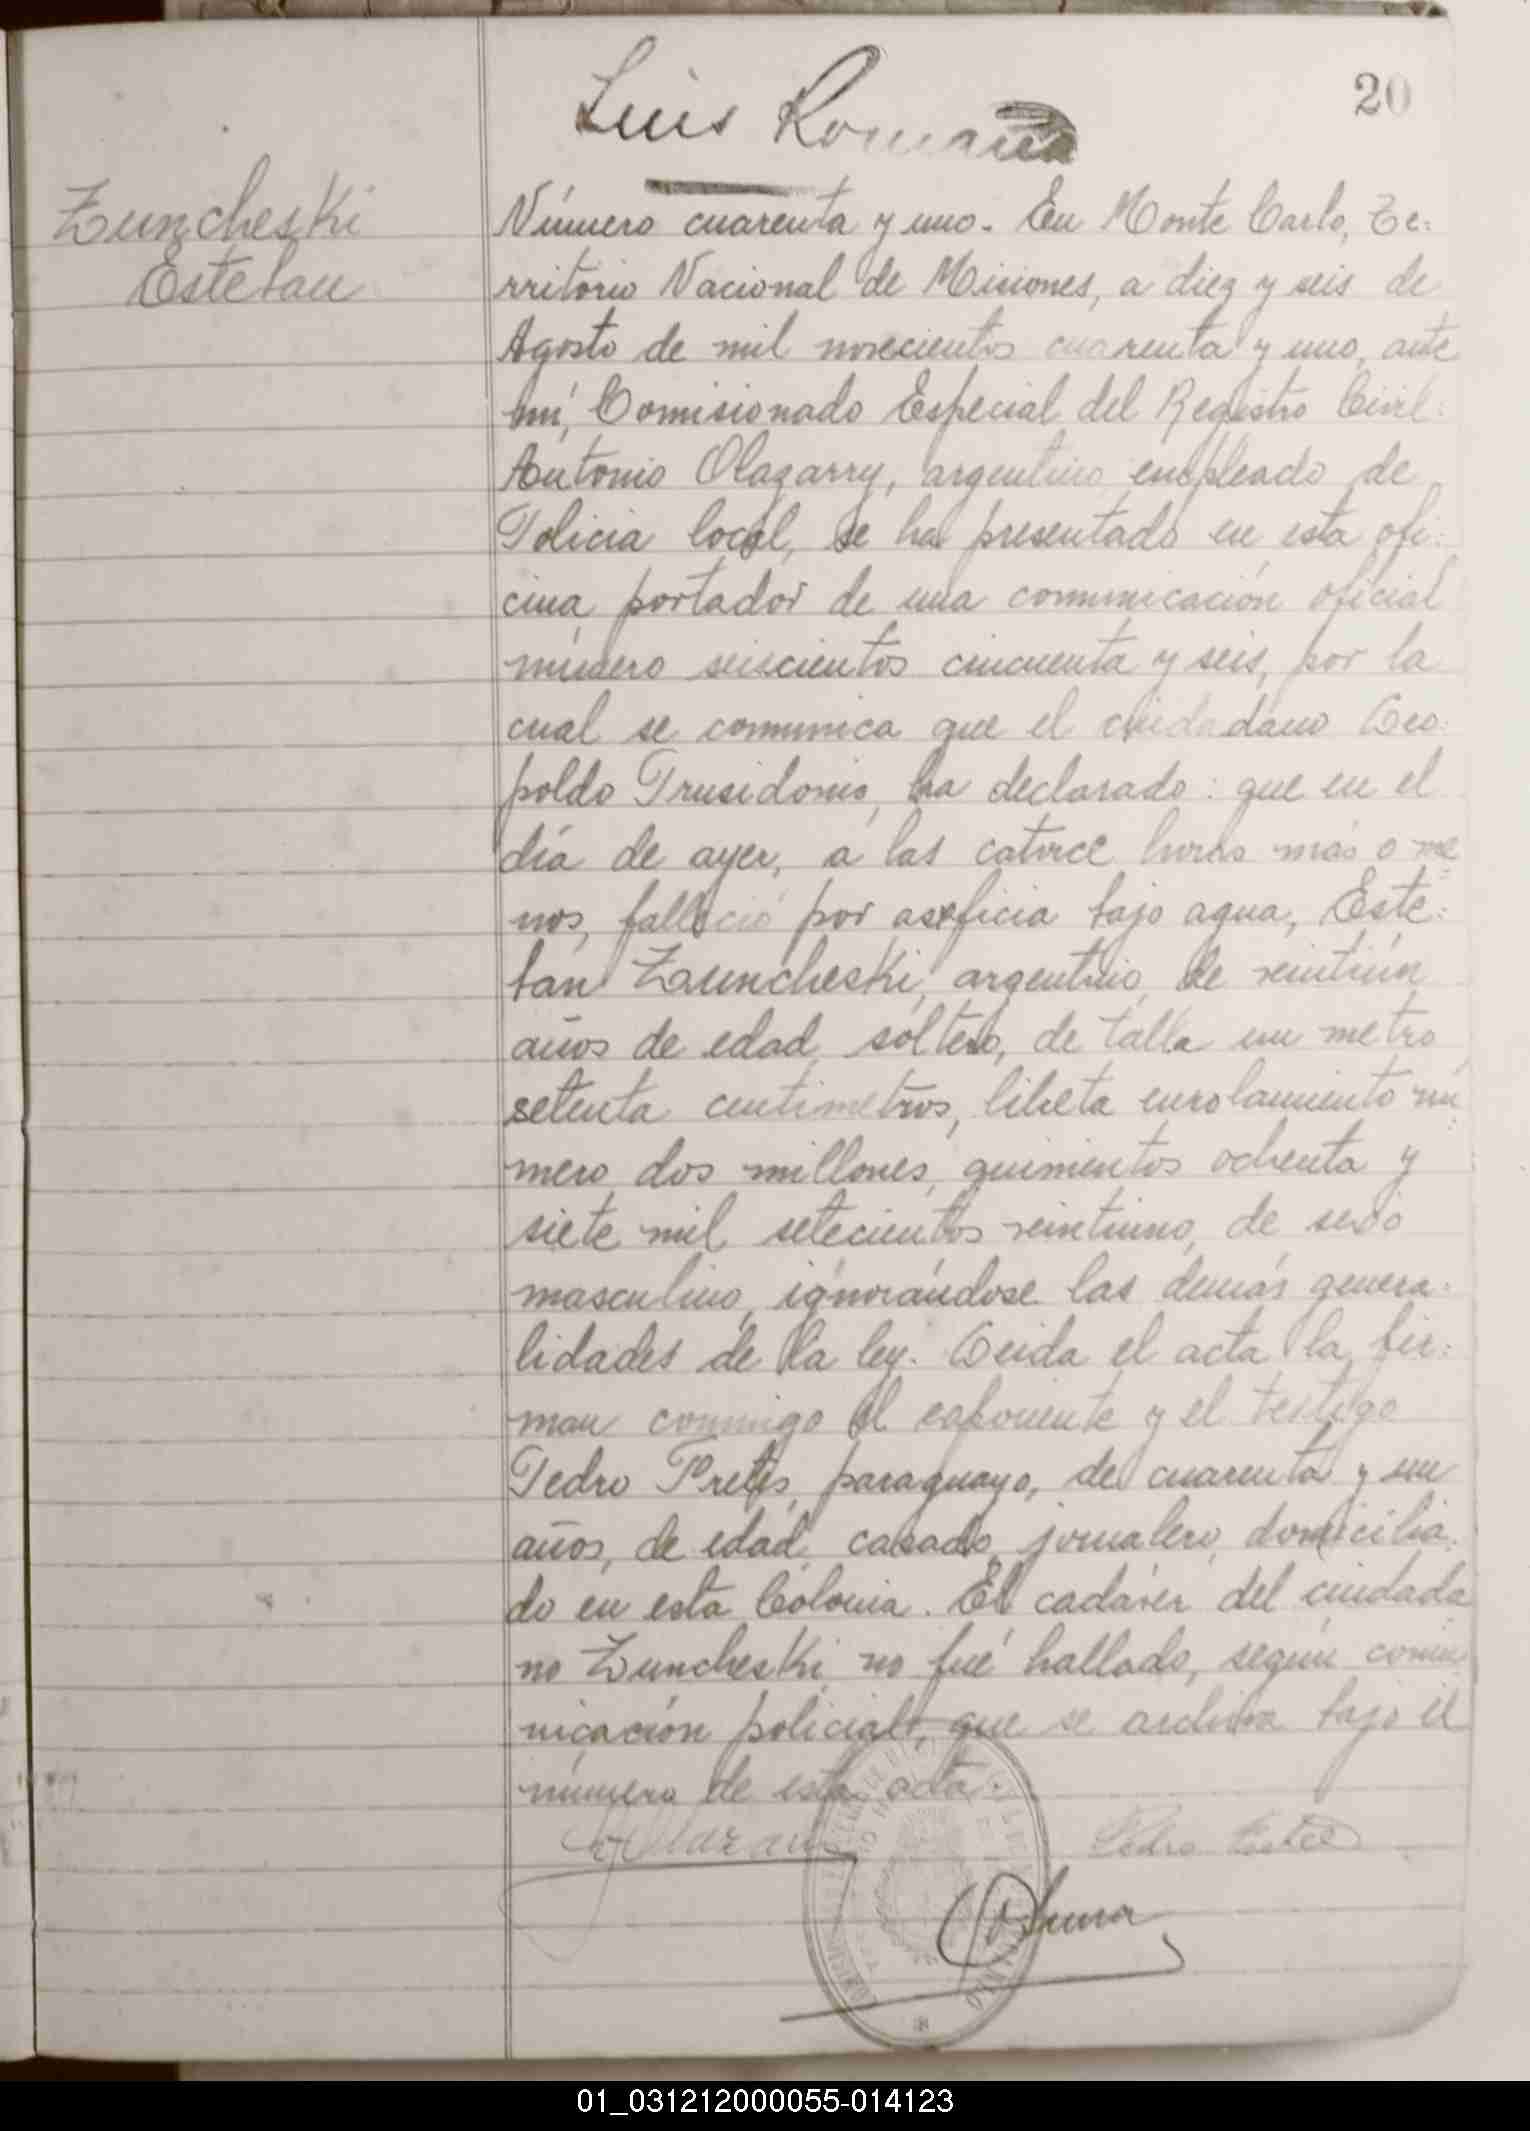 20
Luis Roman
Zuncheski
Esteban
Número cuarenta y uno. En Monte Carlo, Te=
rritorio Nacional de Misiones, a diez y seis de
Agosto de mil novecientos cuarenta y uno, ante
mí, Comisionado Especial del Registro Civil=
Antonio Olagarry, argentino, empleado de
Policia local, se ha presentado en esta ofi=
cina, portador de una comunicación oficial
número seiscientos cincuenta y seis, por la
cual se comunica que el ciudadano Leo=
poldo Trusidonio, ha declarado: que en el
día de ayer, a las catorce horas más o me
nos, falleció por asfixia bajo agua, Este=
ban Zuncheski, argentino, de veintiún
años de edad, soltero, de talla un metro
setenta centimetros, libreta enrolamiento nú
mero dos millones, quinientos ochenta y
siete mil setecientos veintiuno, de sexo
masculino, ignorándose las demás genera=
lidades de la ley. Leida el acta la fir=
man conmigo el exponente y el testigo
Pedro Pretes, paraguayo, de cuarenta y un
años, de edad, casado, jornalero, domicilia=
do en esta Colonia. El cadáver del ciudada
no Zuncheski no fué hallado, según comu
nicación policial, que se archiva bajo el
número de esta acta.
Pedro
01_031212000055-014123